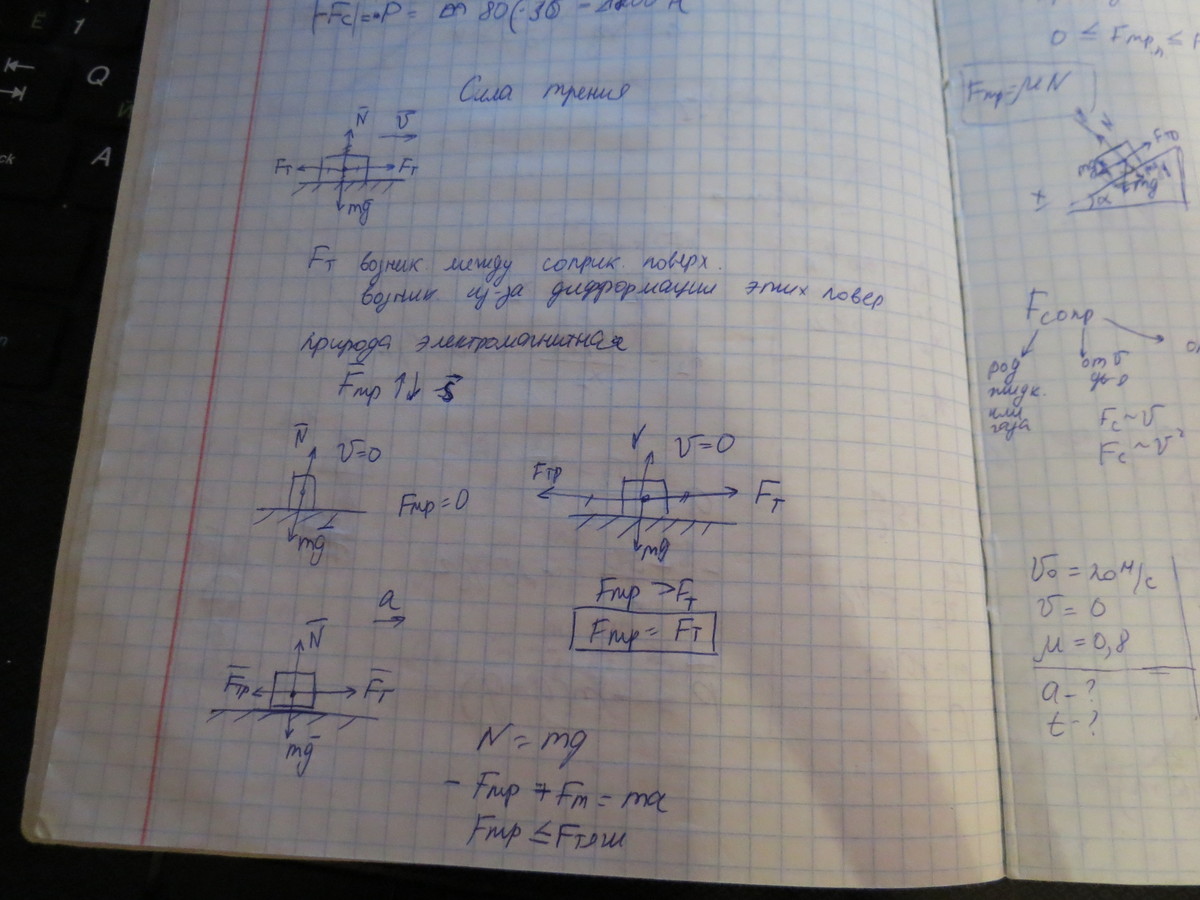 Сила трения
N̄ v̄
Fт Fт
mḡ
Fт возник. между соприк. поверх.
возник из-за дифформации этих повер
природа электромагнитная
F̄тр ↑↓ S̄
N̄ v=0
Fтр=0
mḡ
v=0
Fтр Fт
mḡ
Fтр > Fт
Fтр = Fт
a
N̄
F̄тр F̄т
mḡ
N = mg
- Fтр + Fт = ma
Fтр ≤ Fтяги
0 ≤ Fтр.п ≤ F
Fтр=μN
α
mg
Fсопр
род жидк. или газа
от v
Fc ~ v
Fc ~ v²
v₀ = 20 м/с
v = 0
μ = 0,8
a - ?
t - ?
Q
A
1